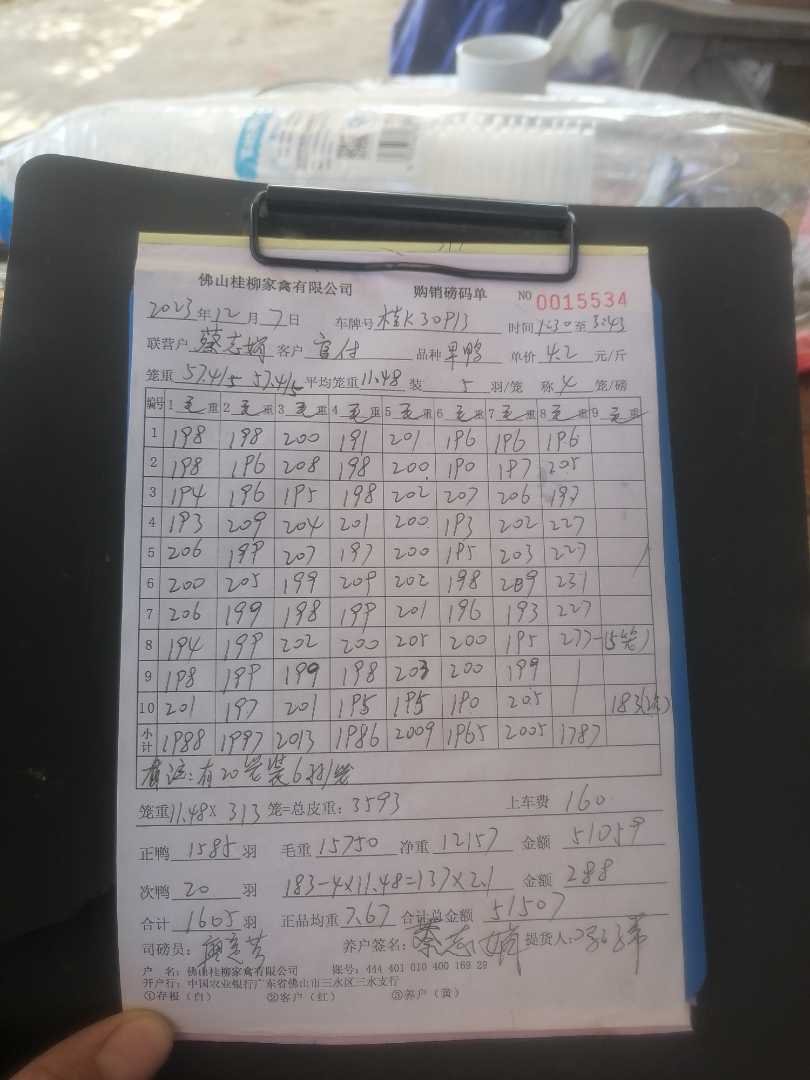 佛山桂柳家禽有限公司 购销磅码单 NO 0015534
2023年12月7日 车牌号 桂K30913 时间 1:30 至 3:43
联营户 蔡志娟 客户 官付 品种 旱鸭 单价 4.2 元/斤
笼重 57.4/5 57.4/5 平均笼重 11.48 装 5 羽/笼 称 4 笼/磅
编号 1 毛重 2 毛重 3 毛重 4 毛重 5 毛重 6 毛重 7 毛重 8 毛重 9 毛重
1 198 198 200 191 201 196 196 196
2 198 196 208 198 200 190 197 205
3 194 196 195 198 202 207 206 197
4 193 209 204 201 200 193 202 227
5 206 199 207 197 200 195 203 227
6 200 205 199 209 202 198 209 231
7 206 199 198 199 201 196 193 227
8 194 199 202 200 205 200 195 277-(5笼)
9 198 199 199 198 203 200 199
10 201 197 201 195 195 190 205 183
小计 1988 1997 2013 1986 2009 1965 2005 1787
备注:有20笼装6羽/笼
笼重 11.48 X 313 笼=总皮重: 3593 上车费 160
正鸭 1585 羽 毛重 15750 净重 12157 金额 51059
次鸭 20 羽 183-4×11.48=137×2.1 金额 288
合计 1605 羽 正品均重 7.67 合计总金额 51507
司磅员: 养户签名: 蔡志娟 提货人:
户 名: 佛山桂柳家禽有限公司 账号: 444 401 010 400 169 29
开户行: 中国农业银行广东省佛山市三水区三水支行
①存根（白） ②客户（红） ③养户（黄）